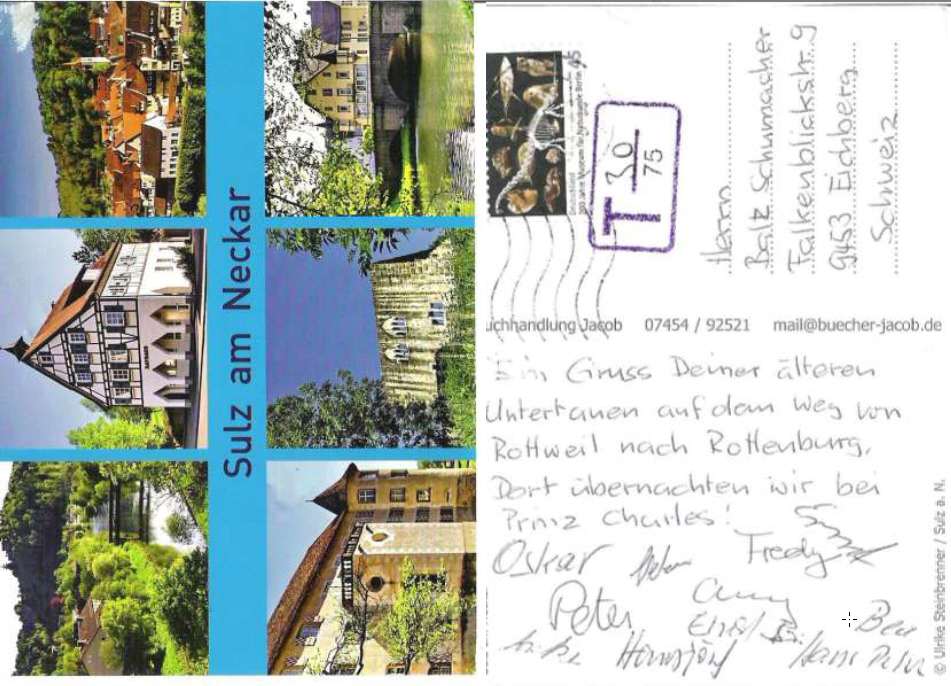 Sulz am Neckar
Deutschland 45
200 Jahre Museum für Naturkunde Berlin
T 30
75
Herrn
Balz Schumacher
Falkenblickstr. 9
9453 Eichberg
Schweiz
uchhandlung Jacob 07454 / 92521 mail@buecher-jacob.de
Ein Gruss Deiner älteren
Untertanen auf dem Weg von
Rottweil nach Rottenburg.
Dort übernachten wir bei
Prinz Charles!
Oskar Fredy
Peter
Hansjörg Hans Peter
© Ulrike Steinbrenner / Sulz a. N.